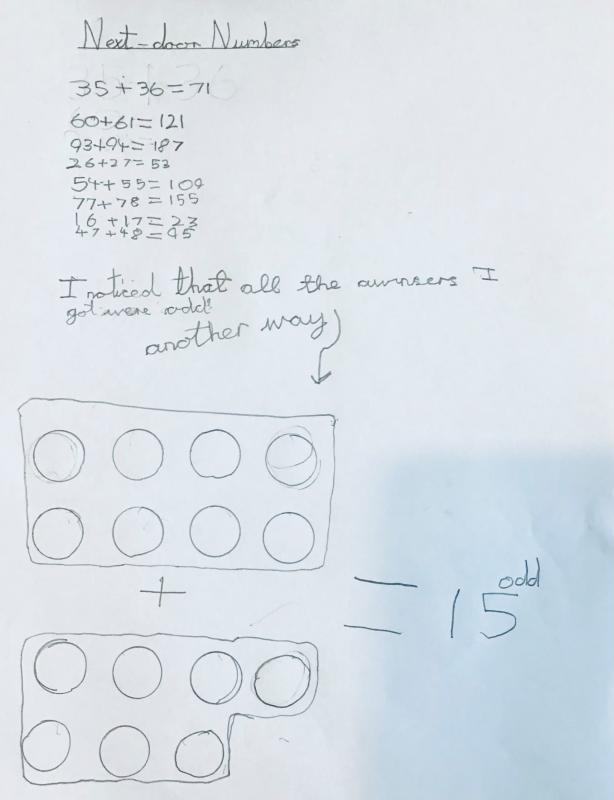 Next-door Numbers
35+36=71
60+61=121
93+94=187
26+27=53
54+55=109
77+78=155
16+17=23
47+48=95
I noticed that all the awnsers I
got were odd!
another way
+
= 15 odd